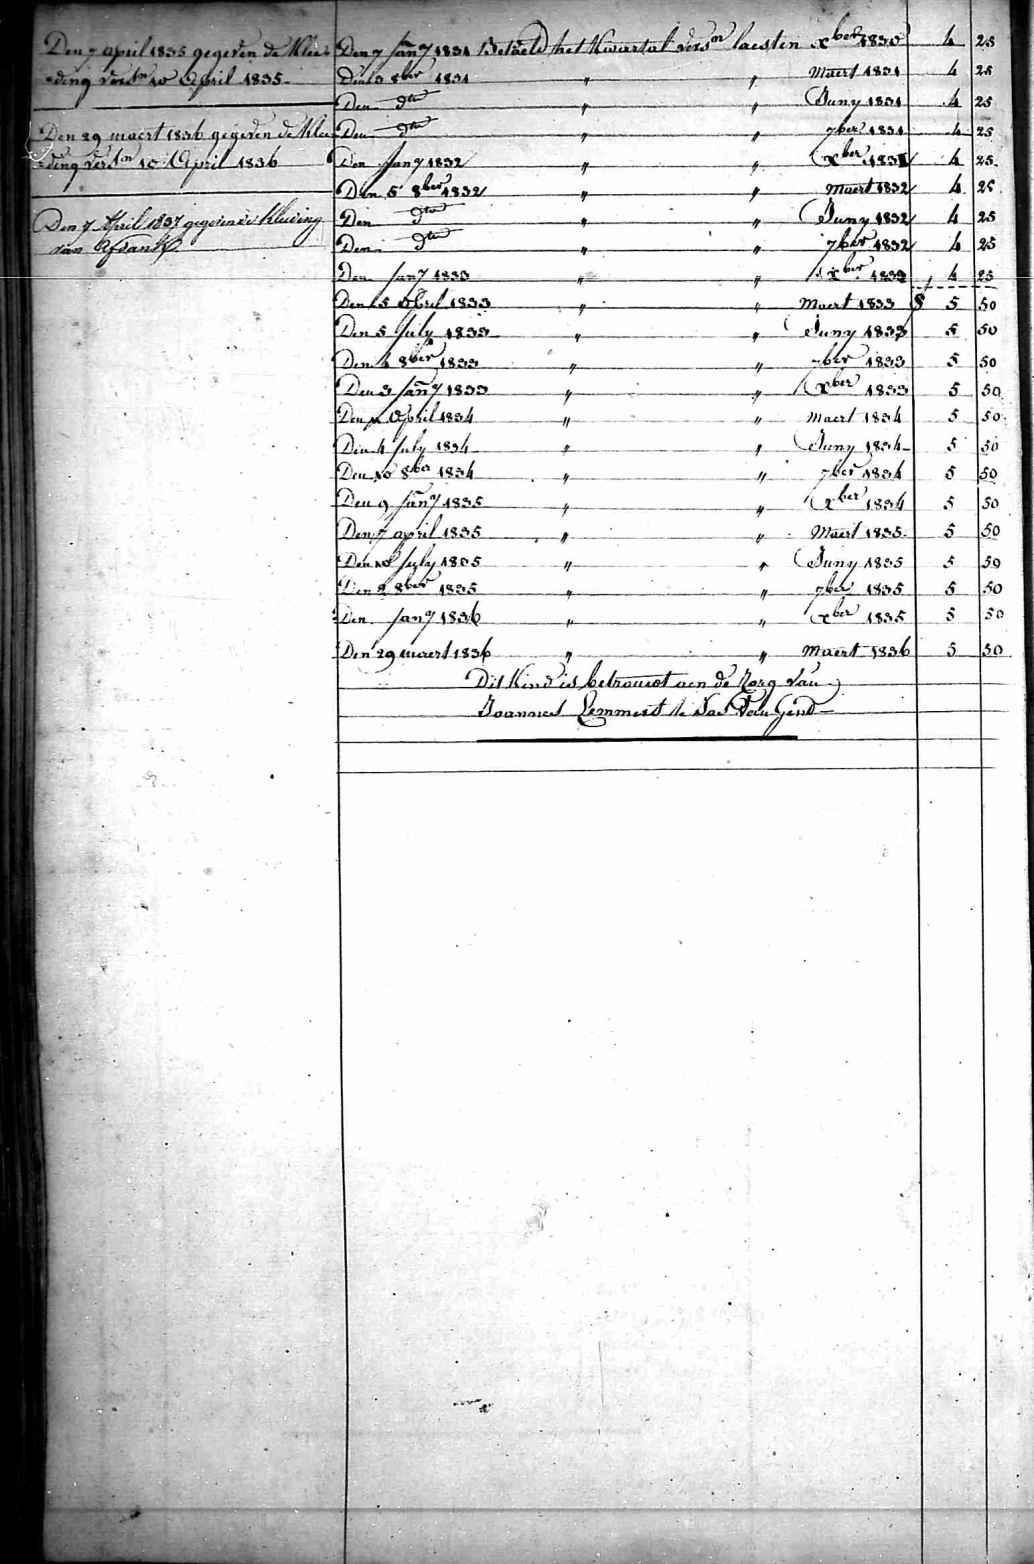 Den 7 april 1835 gegeven de Klee-
=ding vers.tn 10 April 1835
Den 29 maert 1836 gegeven de Klee
=ding vers.tn 10 April 1836
Den 7 April 1837 gegeven de kleeding
van
Den 7 Jany 1831 Betaeld het Kwartal vers.n laesten xber 1830 4 25
8ber 1831 " " Maert 1831 4 25
Den dto " " Juny 1831 4 25
Den dto " " 7ber 1831 4 25
Den Jany 1832 " " xber 1831 4 25
Den 5 8ber 1832 " " Maert 1832 4 25
Den dto " " Juny 1832 4 25
Den dto " " 7ber 1832 4 25
Den Jany 1833 " " xber 1832 4 25
Den 5 April 1833 " " Maert 1833 5 50
Den 5 July 1833 " " Juny 1833 5 50
Den 4 8ber 1833 " " 7ber 1833 5 50
Den 3 Jany 1833 " " xber 1833 5 50
Den April 1834 " " Maert 1834 5 50
Den 4 July 1834 " " Juny 1834 5 50
Den 10 8ber 1834 " " 7ber 1834 5 50
Den 9 Jany 1835 " " xber 1834 5 50
Den 7 april 1835 " " Maert 1835 5 50
Den 10 July 1835 " " Juny 1835 5 50
Den 2 8ber 1835 " " 7ber 1835 5 50
Den Jany 1836 " " xber 1835 5 50
Den 29 maert 1836 " " Maert 1836 5 50
Dit Kind is betrouwt aen de zorg van
Joannes Lemmens te Sas Van Gend